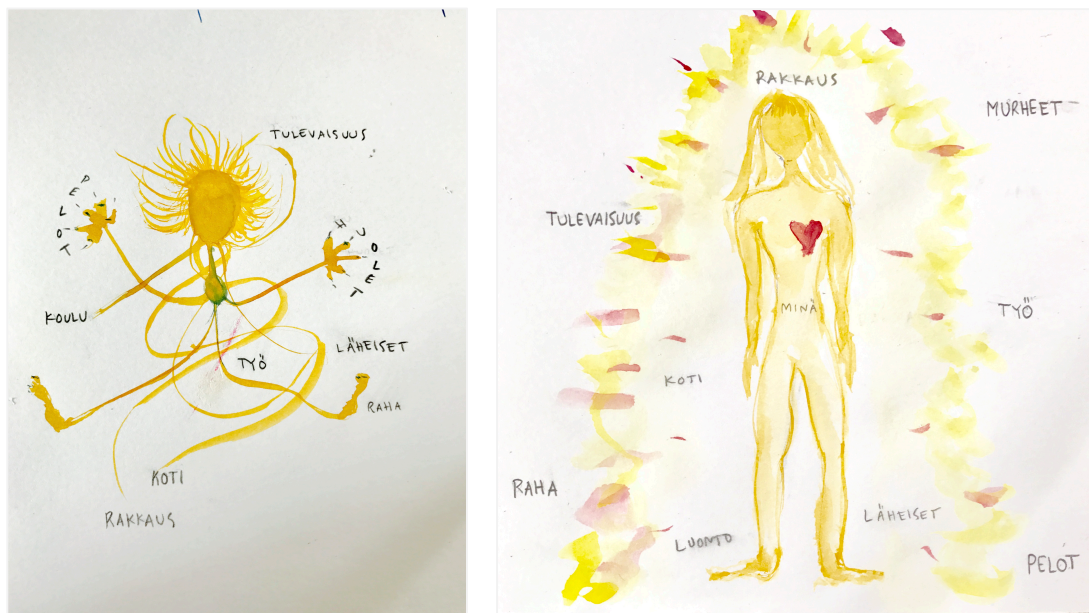 TULEVAISUUS
PELOT
HUOLET
KOULU
LÄHEISET
TYÖ
RAHA
KOTI
RAKKAUS
RAKKAUS
MURHEET
TULEVAISUUS
MINÄ
TYÖ
KOTI
RAHA
LÄHEISET
LUONTO
PELOT